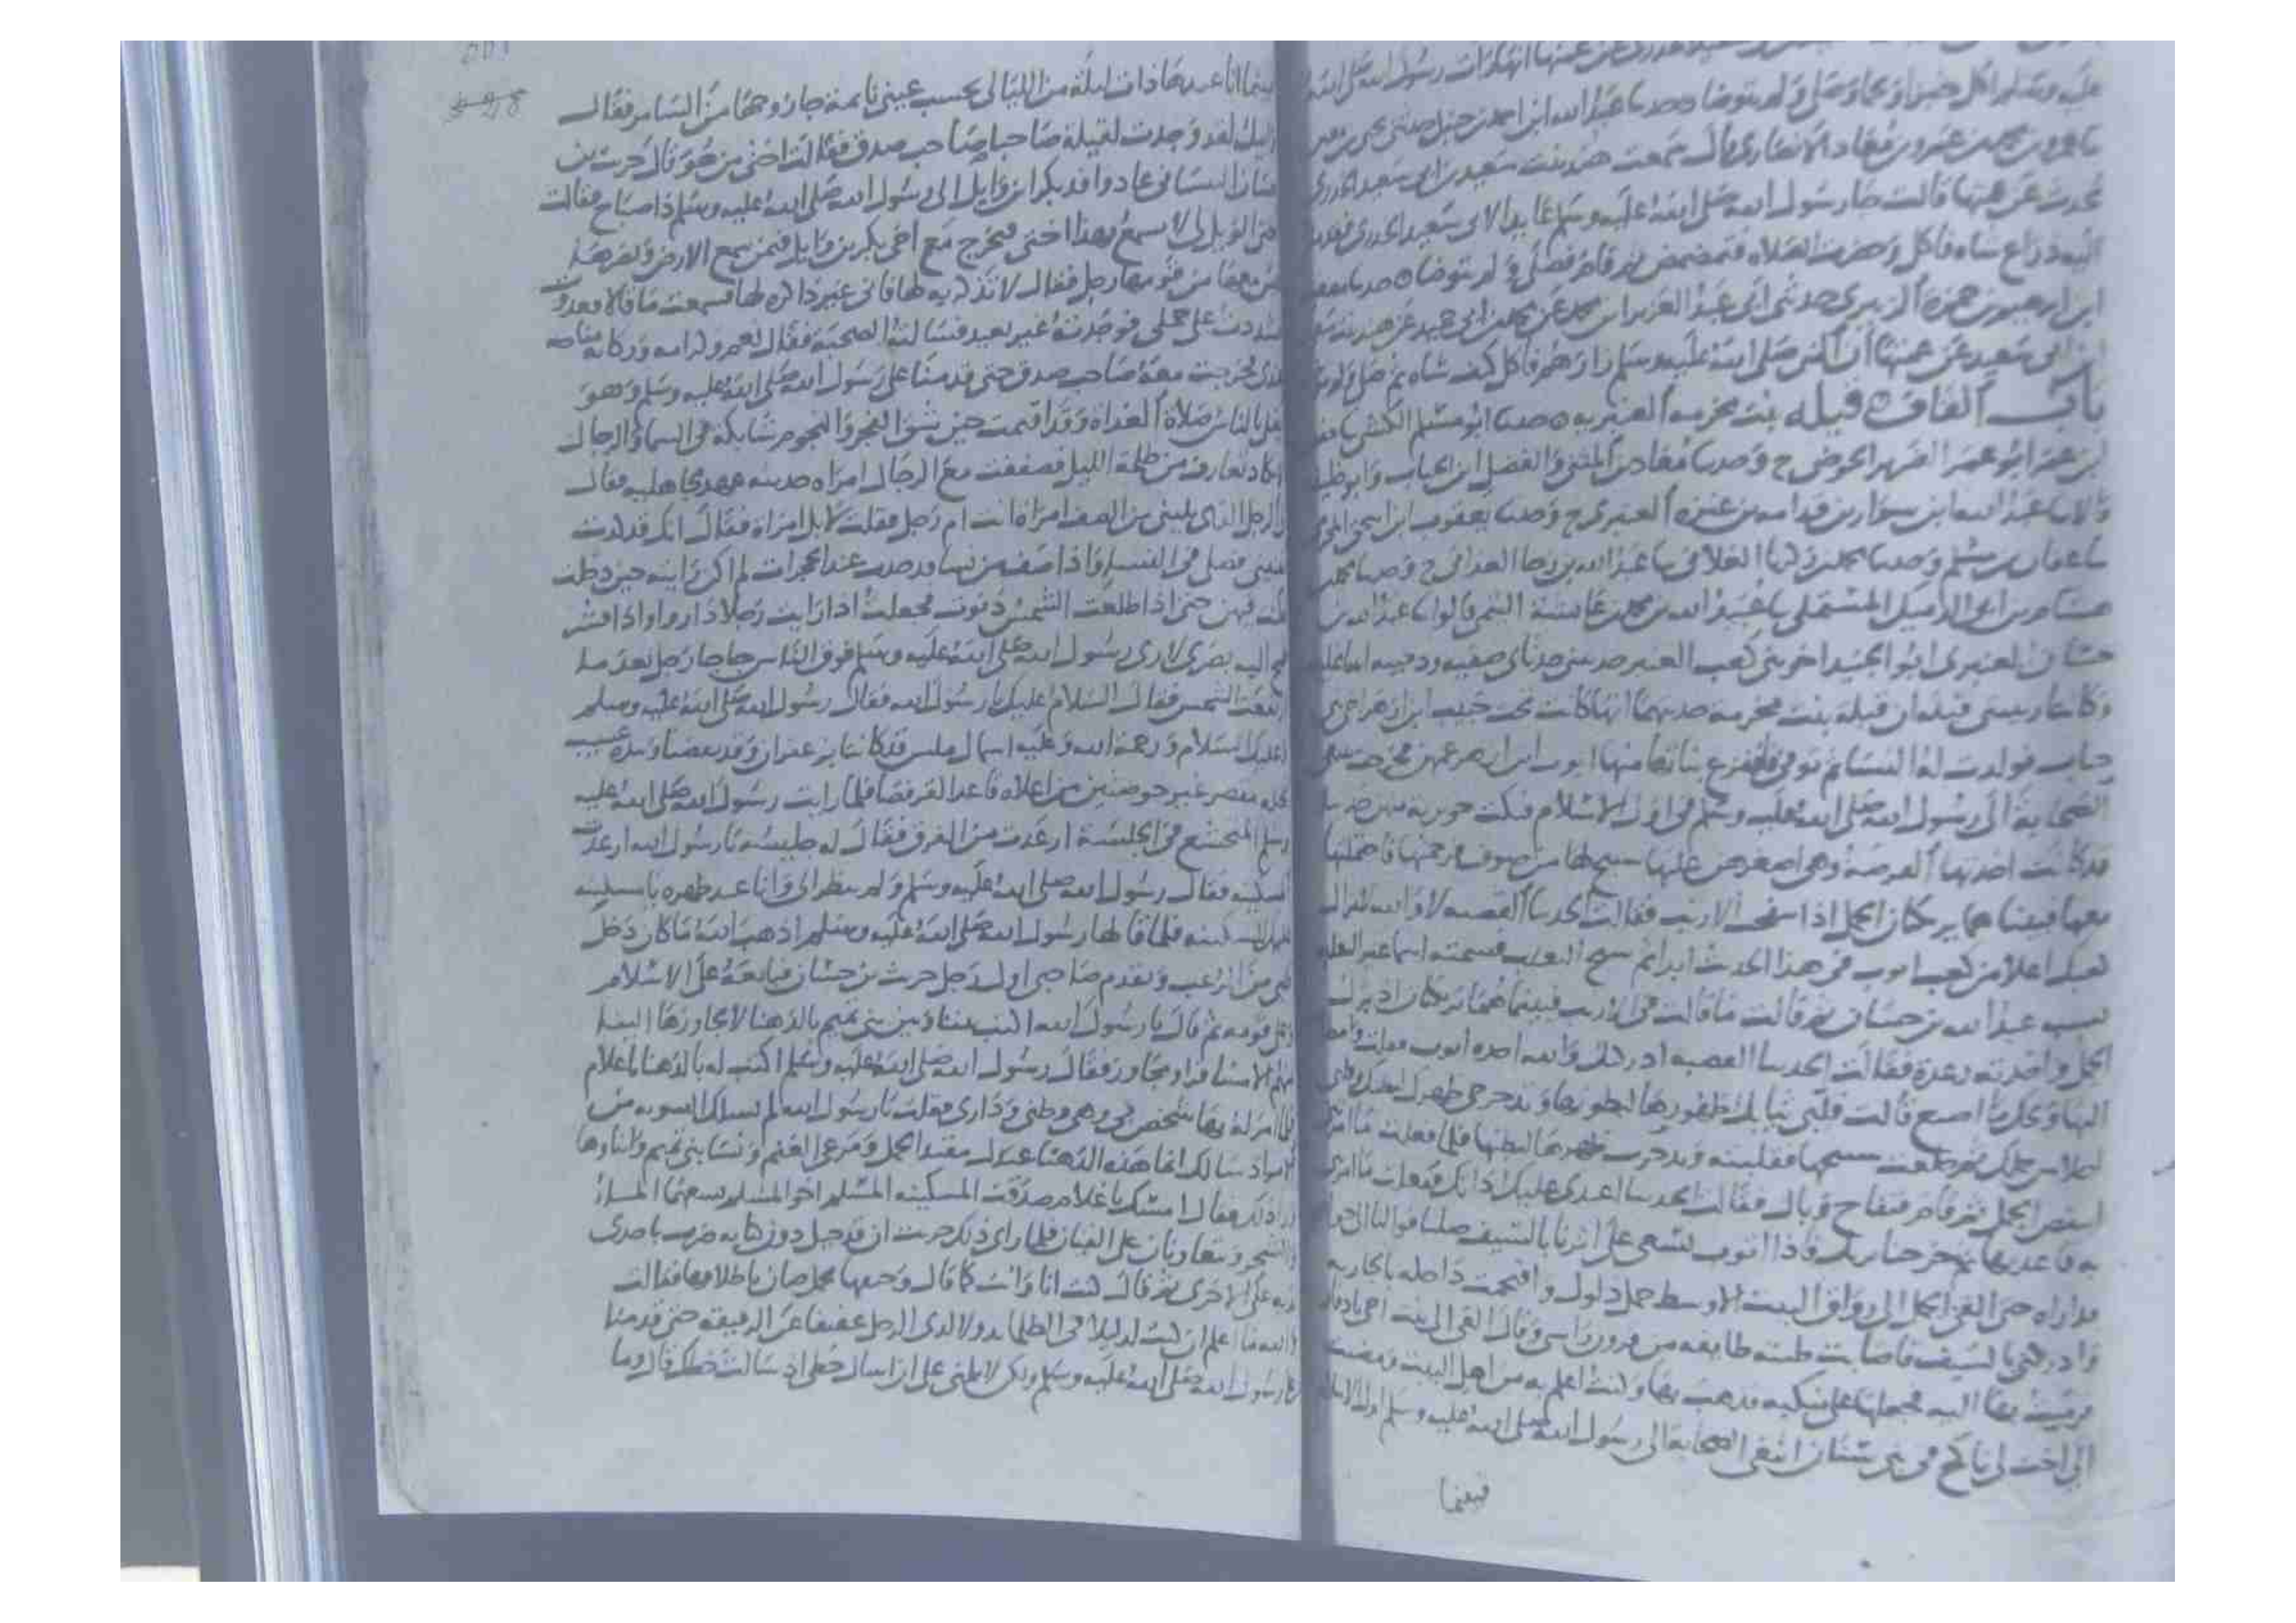 عليه وسلم اكل خبزا ولحما وصلى ولم يتوضا حدثنا عبد الله ابن احمد بن حنبل حدثني
محمد بن عمرو بن معاد الانصاري قال سمعت هند بنت سعيد بن ابي سعيد الخدري
تحدث عن عمتها قالت جا رسول الله صلى الله عليه وسلم عايدا لابي سعيد الخدري
اليه ذراع شاه فاكل وحضرت الصلاه فتمضمض ثم قام فصلى ولم يتوضا
ابن ابرهيم بن حمزه الزبيري حدثني ابي عبد العزيز ابن محمد عن محمد ابن ابي حميد عن هند بنت
ابي سعيد عن عمتها ان النبي صلى الله عليه وسلم زارهم فاكل كتف شاه ثم صلى ولم
باب القاف قيله بنت مخرمه العنبريه حدثنا ابو مسلم الكشي
ابن عمر ابو عمر الضرير الحوضي ح وحدثنا معاذ بن المثنى والفضل ابن الحباب
قالا عبد الله ابن سوار بن قدامه بن عنزه العنبري ح وحدثنا يعقوب ابن اسحق
عفان بن مسلم وحدثنا محمد بن زكريا الغلابي عبد الله بن رجا الغداني ح وحدثنا محمد
هشام بن ابي الدميك المستملي عبيد الله بن محمد بن عايشه التيمي قالوا عبد الله بن
حسان العنبري ابو الجنيد اخو بني كعب العنبر حدثتني جدتاي صفيه ودحيبه
وكانتا ربيبتي قيله ان قيله بنت مخرمه حدثتهما انها كانت تحت حبيب ابن ازهر اخي بني
جناب فولدت له النسا ثم توفي فانتزع بناتها منها ايوب ابن ازهر عمهن فخرجت تبتغي
الصحابه الى رسول الله صلى الله عليه وسلم في اول الاسلام فبكت جويريه منهن
قد كانت اخذتها الفرصه وهي اصغرهن عليها سبيج لها من صوف فرحمتها فاحتملتها
معها فبينا هما يرتكان الجمل اذا انتفجت الارنب فقالت الحديبا القصيه لا والله لا يزال
كعبك اعلا من كعب ايوب في هذا الحديث ابدا ثم سنح الثعلب فسمته اسما غير الثعلب
نسيه عبد الله بن حسان ثم قالت ما قالت في الارنب فبينما هما يرتكان اذ برك
الجمل واخذته رعدة فقالت الحديبا القصيه ادركتك والله اخذه ايوب فقلت واضطررت
اليها ويحك ما اصنع قالت قلبي ثيابك ظهورها لبطونها وتدحرجي ظهرك لبطنك
احلاس جملك ثم خلعت سبيجها فقلبته وتدحرجت ظهرها لبطنها فلما فعلت ما امرتني
انتفض الجمل ثم قام فتفاج وبال فقالت الحديبا اعيدي عليك اداتك ففعلت ما امرتني
به فاعدتها ثم خرجنا نرتك فاذا ايوب يسعى على اثرنا بالسيف صلتا فوالنا الى حوا
قد اراه حتى القى الجمل الى رواق البيت الاوسط جمل ذلول واقتحمت داخله بالجاريه
وادركني بالسيف فاصابت ظبته طايفه من قرون راسي وقال القي الي بنت اخي يادفار
فرميت بها اليه فجعلها على منكبه فذهب بها وكنت اعلم به من اهل البيت ومضيت
الى اخت لي ناكح في بني شيبان ابتغي الصحابة الى رسول الله صلى الله عليه وسلم اول الاسلام
فبينما
بينما انا عندها ذات ليلة من الليالي تحسب عيني نايمة جا زوجها من السامر فقال
ابيك لقد وجدت لقيلة صاحبا صاحب صدق فقالت اختي من هو قال حريث بن
حسان الشيباني غاديا وافد بكر ابن وايل الى رسول الله صلى الله عليه وسلم ذا صباح فقالت
اختي الويل لي لا تسمع بهذا اختي فتخرج مع اخي بكر بن وايل بين سمع الارض وبصرها
ليس معها من قومها رجل فقال لا تذكريه لها فاني غير ذاكره لها فسمعت ما قالا فغدوت
فشددت على جملي فوجدته غير بعيد فسالته الصحبة فقال نعم وكرامه وركابه مناخه
فخرجت معه صاحب صدق حتى قدمنا على رسول الله صلى الله عليه وسلم وهو
يصلي بالناس صلاة الغداه وقد اقيمت حين شق الفجر والنجوم شابكة في السماء والرجال
لا تكاد تعارف من ظلمة الليل فصففت مع الرجال امراه حديثه عهد بجاهليه فقال
لي الرجل الذي يليني من الصف امراه انت ام رجل فقلت لا بل امراة فقال انك قد كدت
تفتنيني فصلي في النساء واذا صف من نسا قد حدث عند الحجرات لم اكن رايته حين دخلت
فكنت فيهن حتى اذا طلعت الشمس دنوت فجعلت اذا رايت رجلا ذا رواء وذا قشر
طمح اليه بصري لارى رسول الله صلى الله عليه وسلم فوق الناس حتى جا رجل بعد ما
ارتفعت الشمس فقال السلام عليك يا رسول الله فقال رسول الله صلى الله عليه وسلم
وعليك السلام ورحمة الله وعليه اسمال مليتين قد كانتا بزعفران وقد نفضتا وبيده عسيب
نخله مقشر غير خوصتين من اعلاه قاعدا القرفصا فلما رايت رسول الله صلى الله عليه
وسلم المتخشع في الجلسة ارعدت من الفرق فقال له جليسه يا رسول الله ارعدت
المسكينه فقال رسول الله صلى الله عليه وسلم ولم ينظر الي وانا عند ظهره يا مسكينه
عليك السكينه فلما قالها رسول الله صلى الله عليه وسلم اذهب الله ما كان دخل
قلبي من الرعب وتقدم صاحبي اول رجل حريث بن حسان فبايعه على الاسلام
وعلى قومه ثم قال يا رسول الله اكتب بيننا وبين بني تميم بالدهنا لا يجاوزها الينا
منهم الا مسافر او مجاور فقال رسول الله صلى الله عليه وسلم اكتب له بالدهنا يا غلام
فلما امر له بها شخص بي وهي وطني وداري فقلت يا رسول الله لم يسلك السويه من
الامر اذ سالك انما هذه الدهنا عندك مقيد الجمل ومرعى الغنم ونسا بني تميم وابناوها
ورا ذلك فقال امسك يا غلام صدقت المسكينه المسلم اخو المسلم يسعهما الماء
والشجر ويتعاونان على الفتان فلما راى ذلك حريث ان قد حيل دون كتابه ضرب باحدى
يديه على الاخرى ثم قال كنت انا وانت كما قال وحتفها تحمل ضان باظلافها فقالت
والله ما اعلم ان كنت لدليلا في الظلما بدولا لدى الرحل عفيفا عن الرفيقه حتى قدمنا
على رسول الله صلى الله عليه وسلم ولكن لا تلمني على ان اسال حظي اذ سالت حظك قال وما